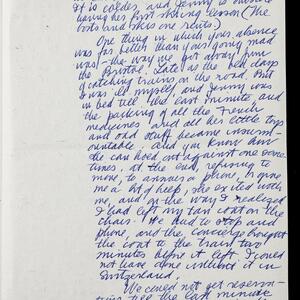 It is colder, and Jenny is outside
having her first skiing lesson (the
boots and skis one rents)
One thing in which your absence
was far better than your going mad
was - the way we got away from
the Bristol. Late as the bell days
of catching trains on the road. But
I was ill myself, and Jenny was
in bed till the last minute, and
the packing of all the French
medicines and all her little toys
and odd stuff became insurm-
ountable; and you know how
she can hold out against one some-
times, at the end, refusing to
move, to answer a phone, to give
me a bit of help, she exited with
me, and on the way I realized
I had left my tan coat on the
chair! We had to stop and
phone, and the concierge brought
the coat to the train two
minutes before it left. I could
not have done without it in
Switzerland.
We could not get reserva-
tions till the last minute